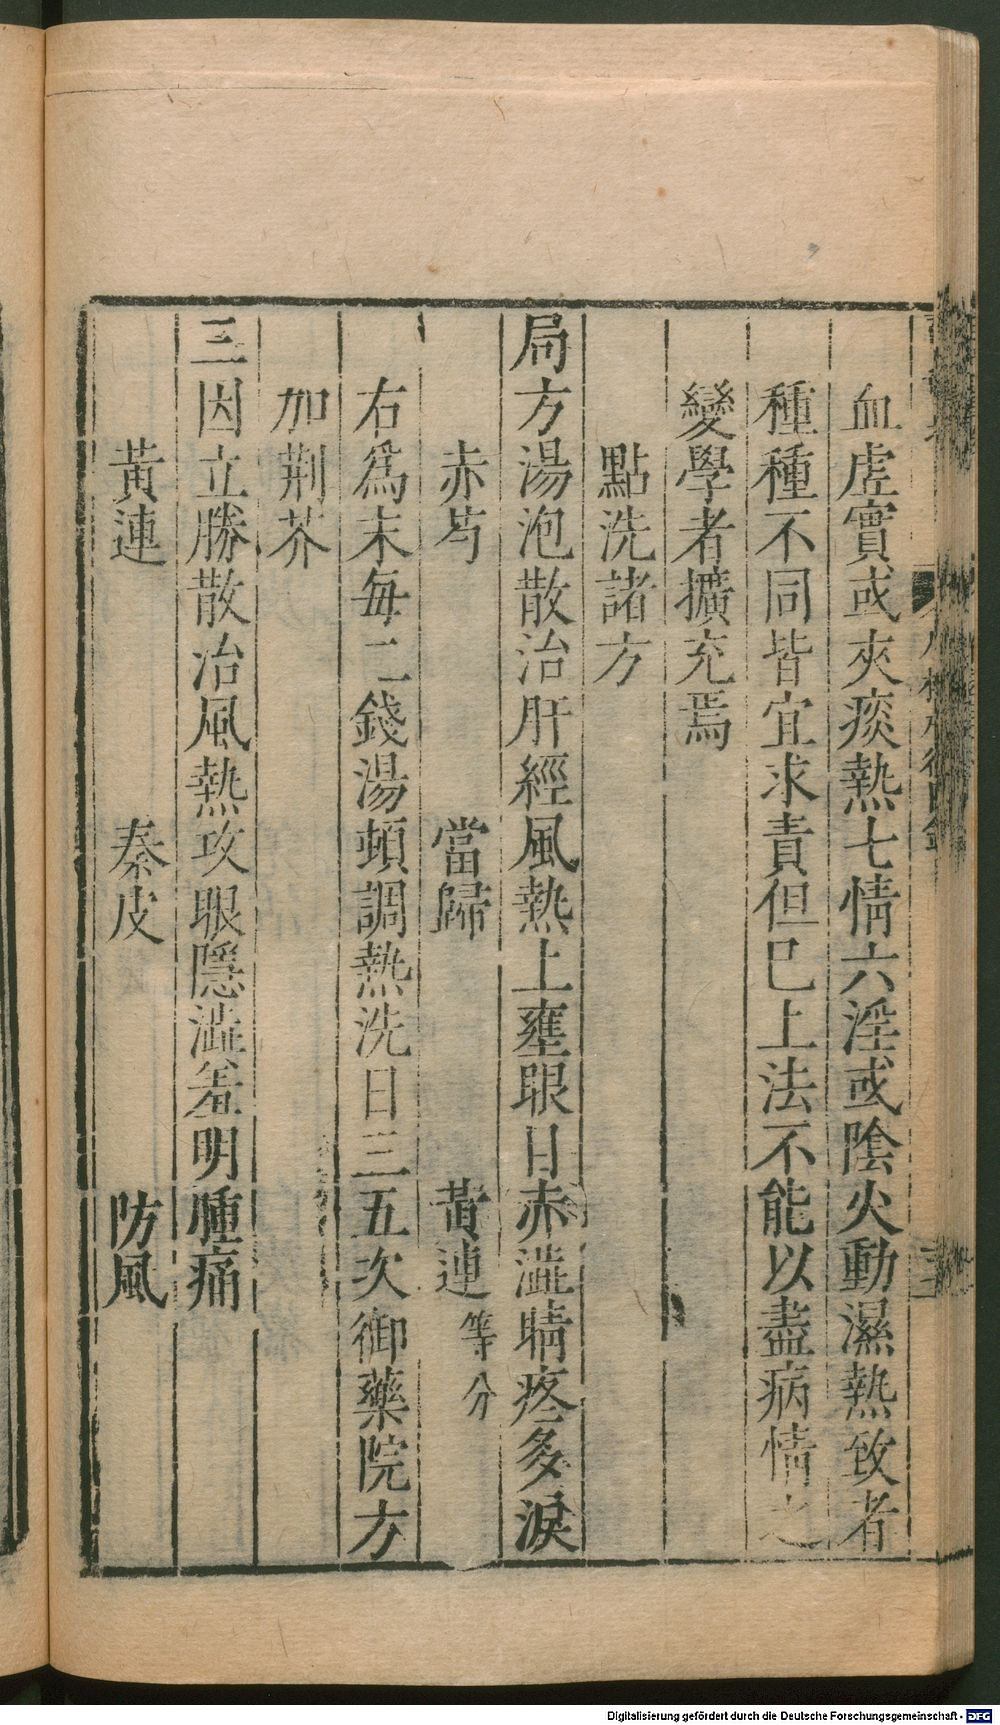 血虛實或夾痰熱七情六淫或陰火動濕熱致者
種種不同皆宜求責但已上法不能以盡病情之
變學者擴充焉
點洗諸方
局方湯泡散治肝經風熱上壅眼目赤澁睛疼多淚
赤芍　當歸　黃連等分
右爲末每二錢湯頓調熱洗日三五次御藥院方
加荆芥
三因立勝散治風熱攻眼隱澁羞明腫痛
黃連　秦皮　防風
Digitalisierung gefördert durch die Deutsche Forschungsgemeinschaft - DFG